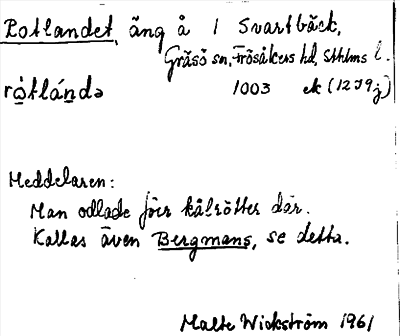 Rotlandet, äng å 1 Svartbäck,
Gräsö sn, Frösåkers hd, Sthlms l.
rò̱tláṉdə 1003 ek (12J9j)
Meddelaren:
Man odlade förr kålrötter där.
Kallas även Bergmans, se detta.
Malte Wickström 1961